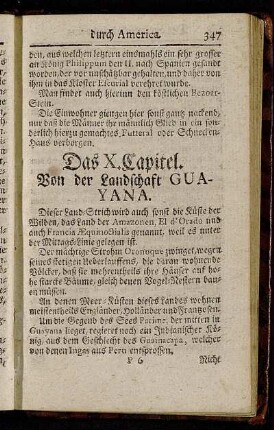 durch America. 347
den, aus welchen letztern einsmahls ein sehr grosser
an König Philippum den II. nach Spanien gesandt
worden, der vor unschätzbar gehalten, und daher von
ihm in das Kloster Escurial verehret wurde.
Man findet auch hierinn den köstlichen Bezoar-
Stein.
Die Einwohner giengen hier sonst gantz nackend,
nur daß die Männer ihr männlich Glied in ein son-
derlich hierzu gemachtes Futteral oder Schnecken-
Haus verborgen.
Das X. Capitel.
Von der Landschaft GUA-
YANA.
Dieser Land-Strich wird auch sonst die Küste der
Wilden, das Land der Amazonen, El d'Orado und
auch Francia Æquinoctialis genannt, weil es unter
der Mittags-Linie gelegen ist.
Der mächtige Strohm Oronoque zwinget, wegen
seines stetigen Ueberlauffens, die daran wohnende
Völcker, daß sie mehrentheils ihre Häuser auf hohe
starcke Bäume, gleich denen Vogel-Nestern bau-
en müssen.
An denen Meer-Küsten dieses Landes wohnen
meistentheils Engländer, Holländer und Frantzosen.
Um die Gegend des Sees Parime, der mitten in
Guayana lieget, regieret noch ein Indianischer Kö-
nig, aus dem Geschlecht des Guainacapa, welcher
von denen Ingas aus Peru entsprossen.
Nicht